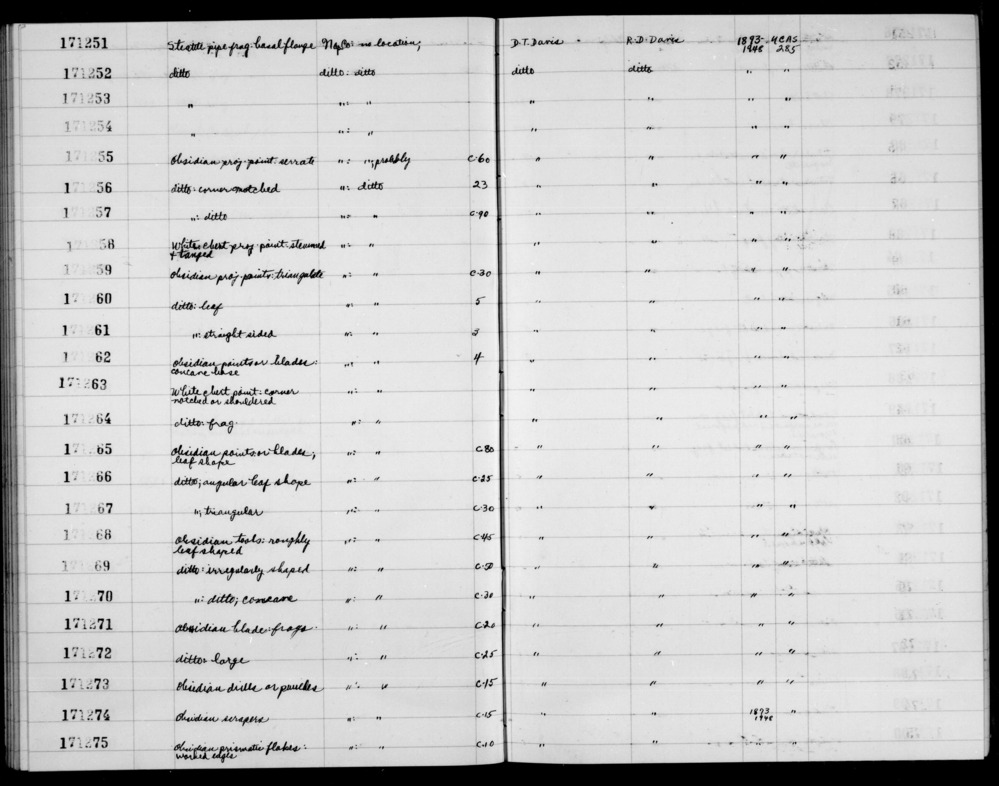 171251 Steatite pipe frag: basal flange Nap Co: no location; D.T. Davis R.D. Davis 1893-1948 4CAS 285
171252 ditto ditto: ditto ditto ditto " "
171253 " ": " " " " "
171254 " ": " " " " "
171255 Obsidian proj. point serrate ": "; probably C.60 " " " "
171256 ditto: corner-notched ": ditto 23 " " " "
171257 ": ditto ": " C.40 " " " "
171258 White chert proj. point: stemmed ": " " " " "
+ tanged
171259 Obsidian proj. points: triangular ": " C.30 " " " "
171260 ditto: leaf ": " 5 " " " "
171261 ": straight sided ": " 3 " " " "
171262 Obsidian points or blades: ": " 4 " " " "
concave base
171263 White chert point: corner ": " " " " "
notched or shouldered
171264 ditto: frag. ": " " " " "
171265 Obsidian points or blades; ": " C.80 " " " "
leaf shape
171266 ditto; angular leaf shape ": " C.25 " " " "
171267 "; triangular ": " C.30 " " " "
171268 Obsidian tools: roughly ": " C.45 " " " "
leaf shaped
171269 ditto: irregularly shaped ": " C.50 " " " "
171270 ": ditto; concave ": " C.30 " " " "
171271 Obsidian blade frags. ": " C.20 " " " "
171272 ditto: large ": " C.25 " " " "
171273 Obsidian drills or punches ": " C.15 " " " "
171274 Obsidian scrapers ": " C.15 " " 1893 1948 "
171275 Obsidian prismatic flakes: ": " C.10 " " " "
worked edges